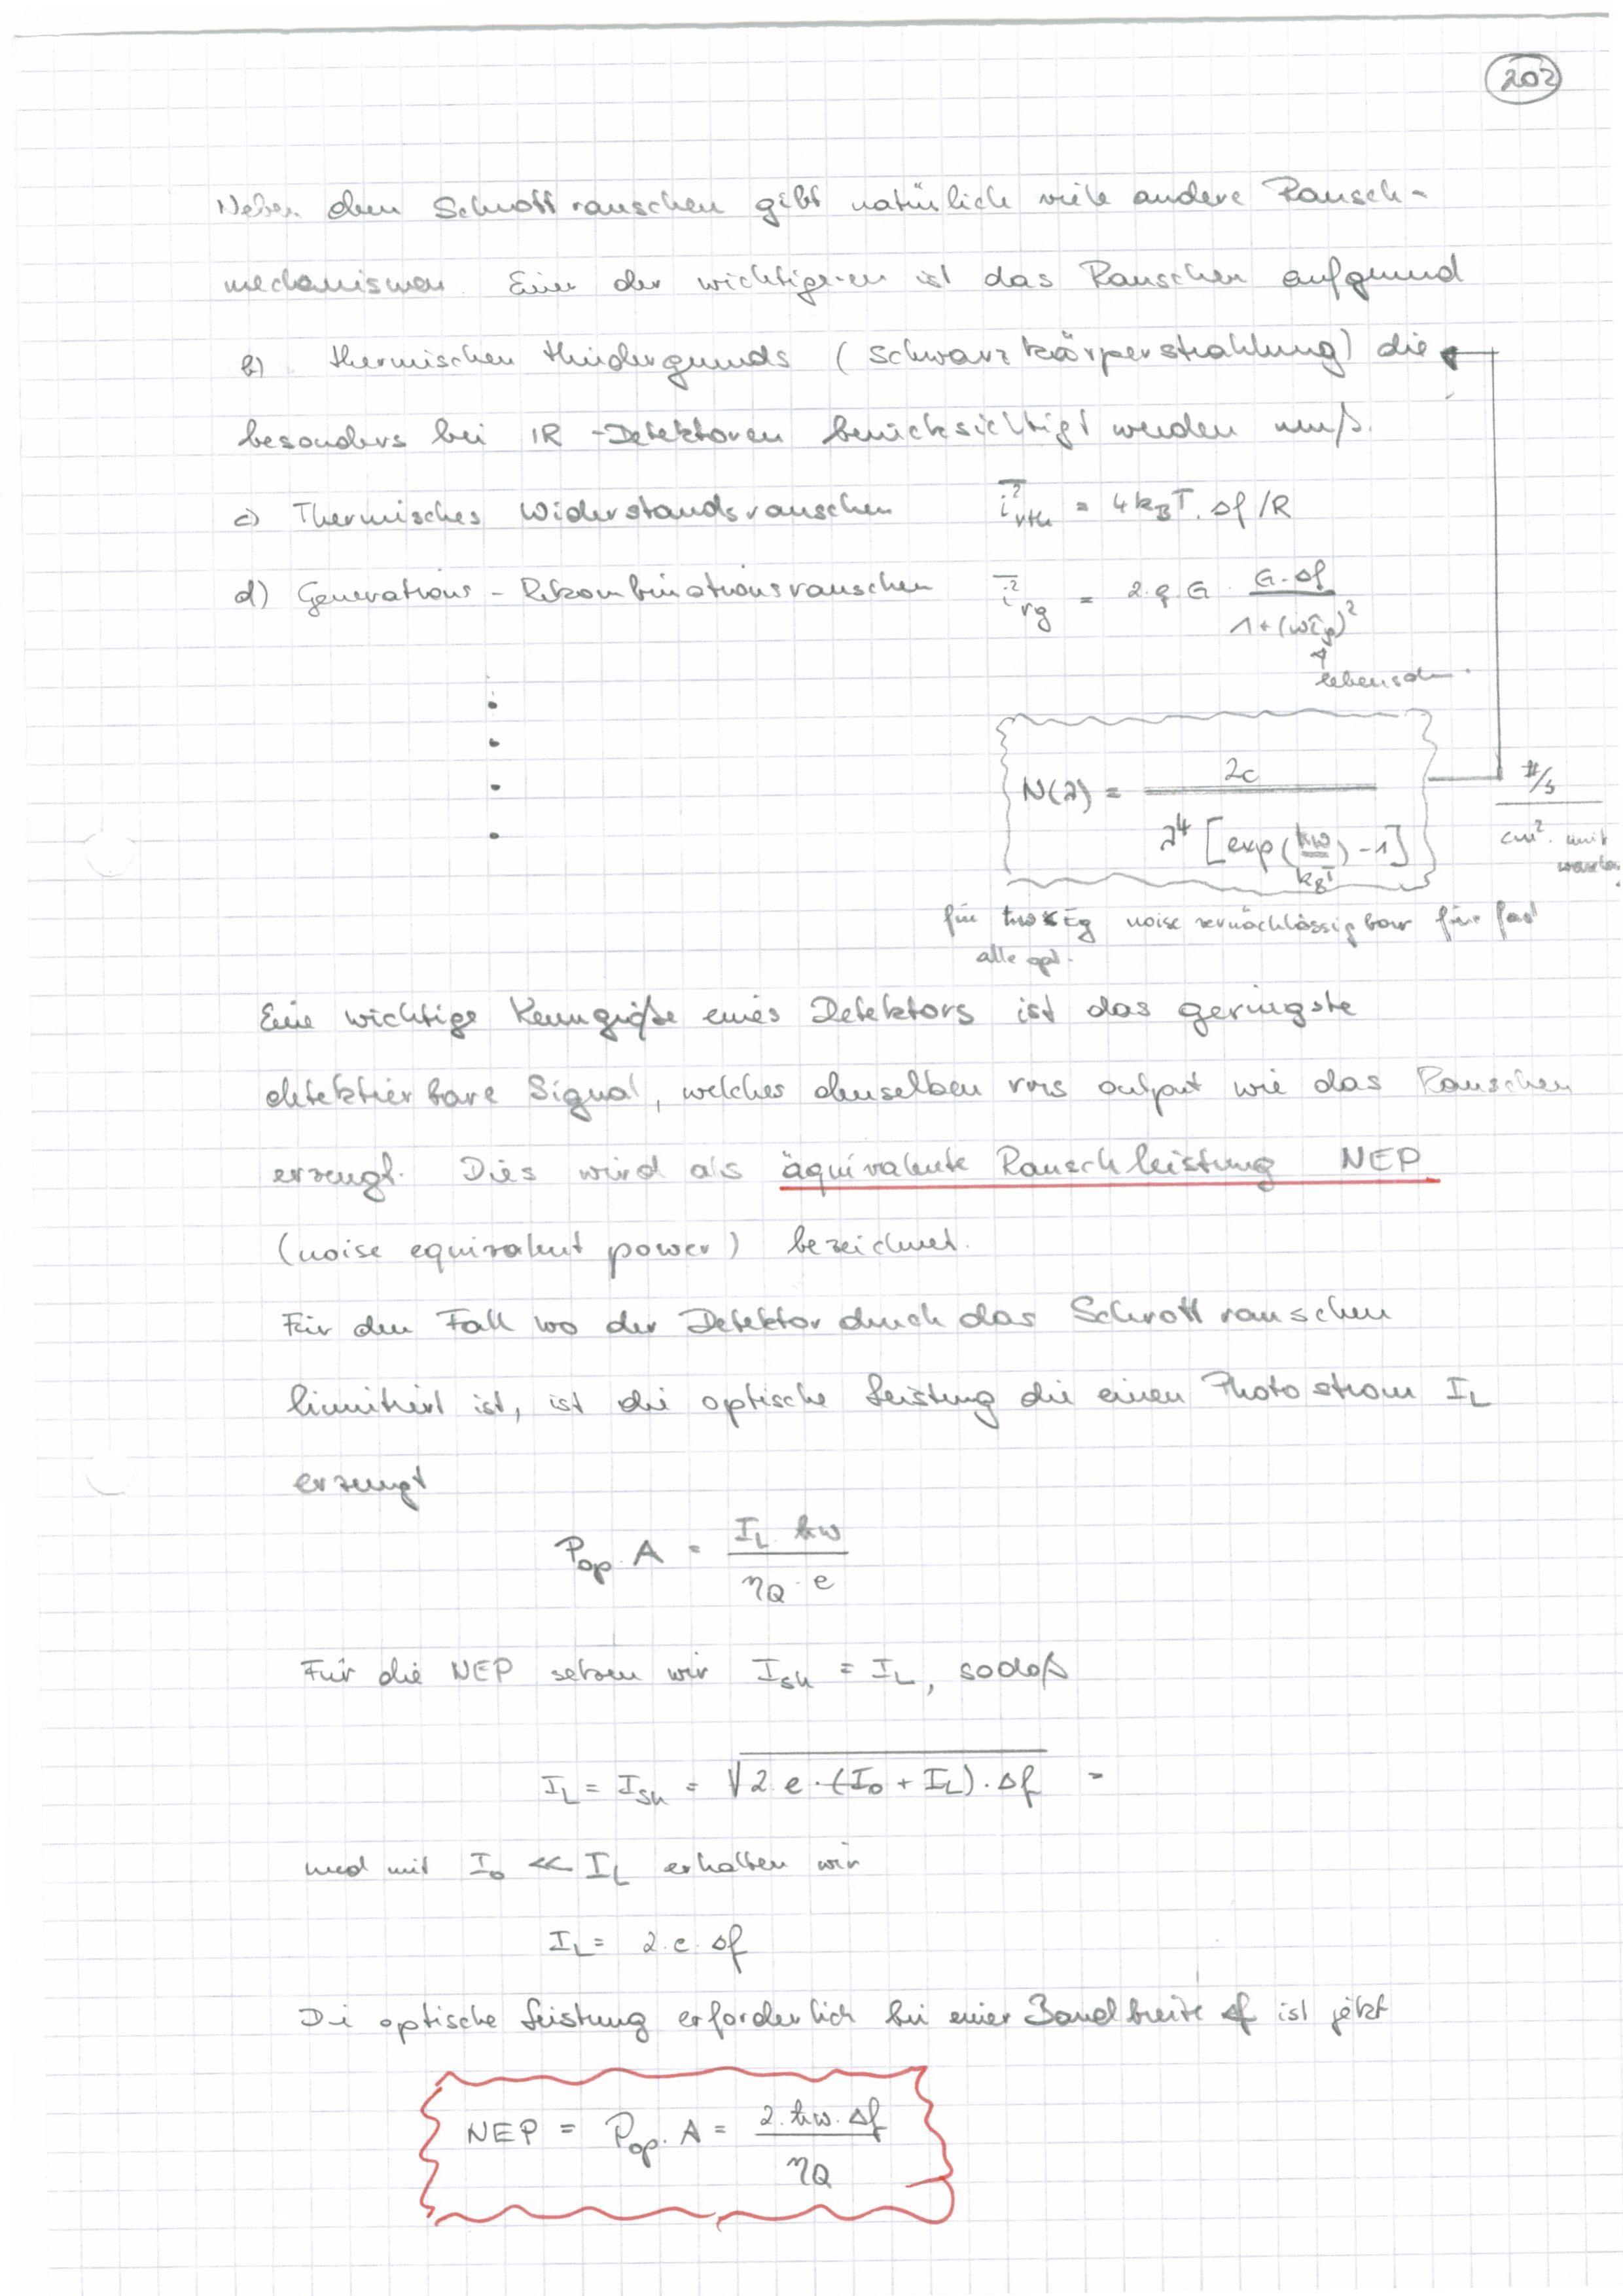 202
Neben dem Schrottrauschen gibt natürlich viele andere Rausch-
mechanismen. Einer der wichtigeren ist das Rauschen aufgrund
b) thermischen Hindergrunds (Schwarzkörperstrahlung) die
besonders bei IR-Detektoren berücksichtigt werden muß.
c) Thermisches Widerstandsrauschen i²rth = 4kBT. Δf/R
d) Generations-Rekombinationsrauschen i²rg = 2.q.G. G.Δf / 1+(ωτp)²
N(λ) = 2c / λ⁴ [exp(ħω/kBT) -1]
#/s
cm².
für ħω Eg noise vernachlässigbar für fast
alle opt.
Eine wichtige Kenngröße eines Detektors ist das geringste
detektierbare Signal, welches denselben rms output wie das Rauschen
erzeugt. Dies wird als äquivalente Rauschleistung NEP
(noise equivalent power) bezeichnet.
Für den Fall wo der Detektor durch das Schrottrauschen
limitiert ist, ist die optische Leistung die einen Photostrom IL
erzeugt
Pop. A = IL. ħω / ηQ · e
Für die NEP setzen wir Ish = IL, sodaß
IL = Ish = √2 e·(I0 + IL)·Δf =
und mit I0 ≪ IL erhalten wir
IL = 2.e.Δf
Die optische Leistung erforderlich bei einer Bandbreite Δf ist jetzt
NEP = Pop. A = 2.ħω.Δf / ηQ